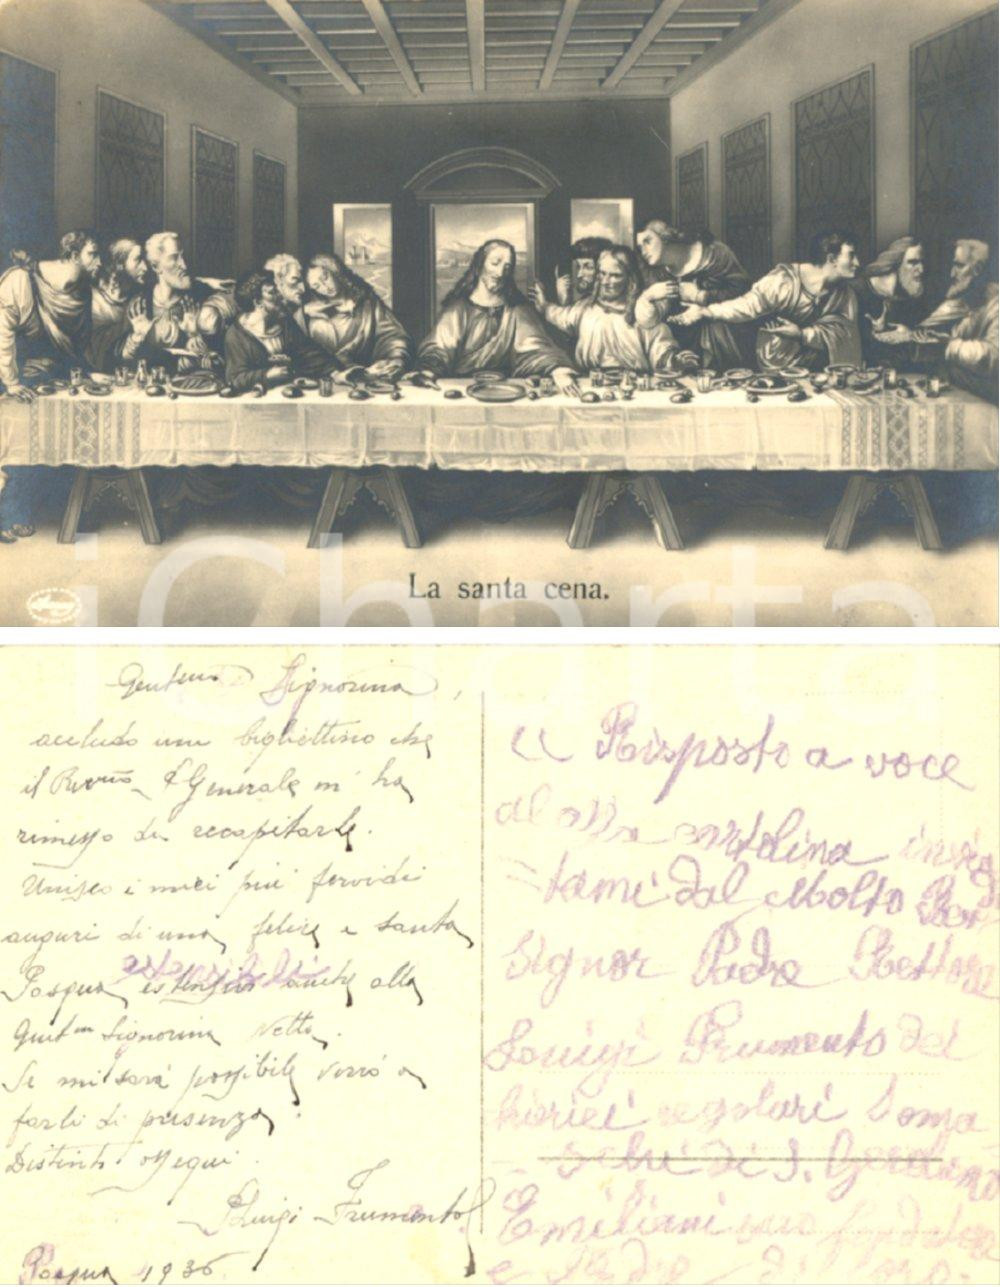 La santa cena.
iCharta
Gent.ma Signorina,
accludo un bigliettino che
il Rev.mo P. Generale m'ha
rimesso da recapitarle.
Unisco i miei più fervidi
auguri di una felice e santa
Pasqua estensibili anche alla
Gent.ma Signorina Netta.
Se mi sarà possibile verrò a
farli di presenza.
Distinti ossequi.
P. Luigi Frumento
Pasqua 1936
Risposto a voce
alla cartolina invia
=tami dal Molto Rev.do
Signor Padre Rettore
Luigi Frumento dei
hierici regolari Soma
schi di S. Gerolamo
Emiliani suo fondatore
e Padre